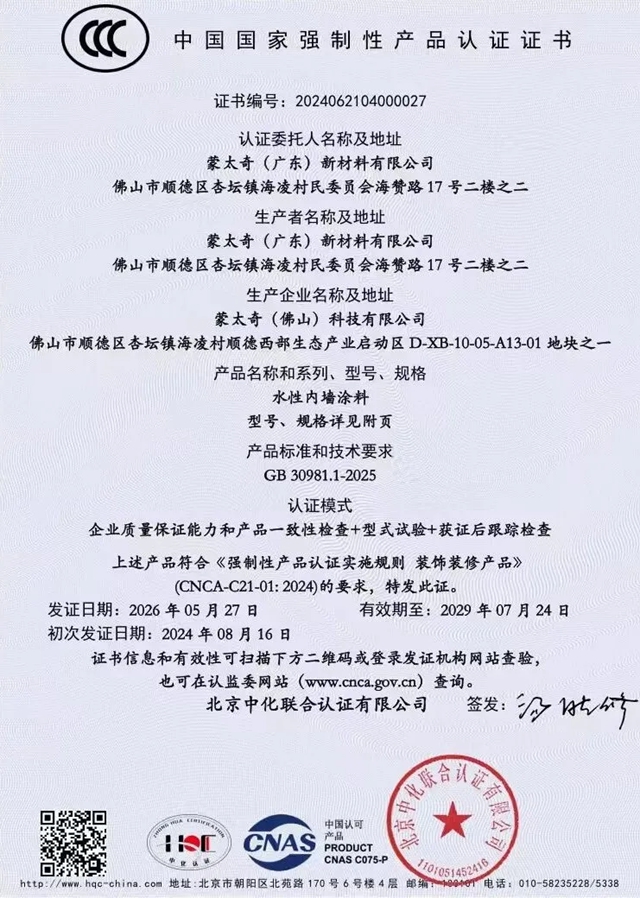 中国国家强制性产品认证证书
证书编号：2024062104000027
认证委托人名称及地址
蒙太奇（广东）新材料有限公司
佛山市顺德区杏坛镇海凌村民委员会海赞路 17 号二楼之二
生产者名称及地址
蒙太奇（广东）新材料有限公司
佛山市顺德区杏坛镇海凌村民委员会海赞路 17 号二楼之二
生产企业名称及地址
蒙太奇（佛山）科技有限公司
佛山市顺德区杏坛镇海凌村顺德西部生态产业启动区 D-XB-10-05-A13-01 地块之一
产品名称和系列、型号、规格
水性内墙涂料
型号、规格详见附页
产品标准和技术要求
GB 30981.1-2025
认证模式
企业质量保证能力和产品一致性检查+型式试验+获证后跟踪检查
上述产品符合《强制性产品认证实施规则 装饰装修产品》
(CNCA-C21-01: 2024)的要求，特发此证。
发证日期：2026 年 05 月 27 日 有效期至：2029 年 07 月 24 日
初次发证日期：2024 年 08 月 16 日
证书信息和有效性可扫描下方二维码或登录发证机构网站查验，
也可在认监委网站（www.cnca.gov.cn）查询。
北京中化联合认证有限公司 签发：
北京中化联合认证有限公司
1101051452416
ZHONG HUA CERTIFICATION
HQC
中化认证
CNAS
中国认可
产品
PRODUCT
CNAS C075-P
http://www.hqc-china.com 地址:北京市朝阳区北苑路 170 号 6 号楼 4 层 邮编: 电话: 010-58235228/5338